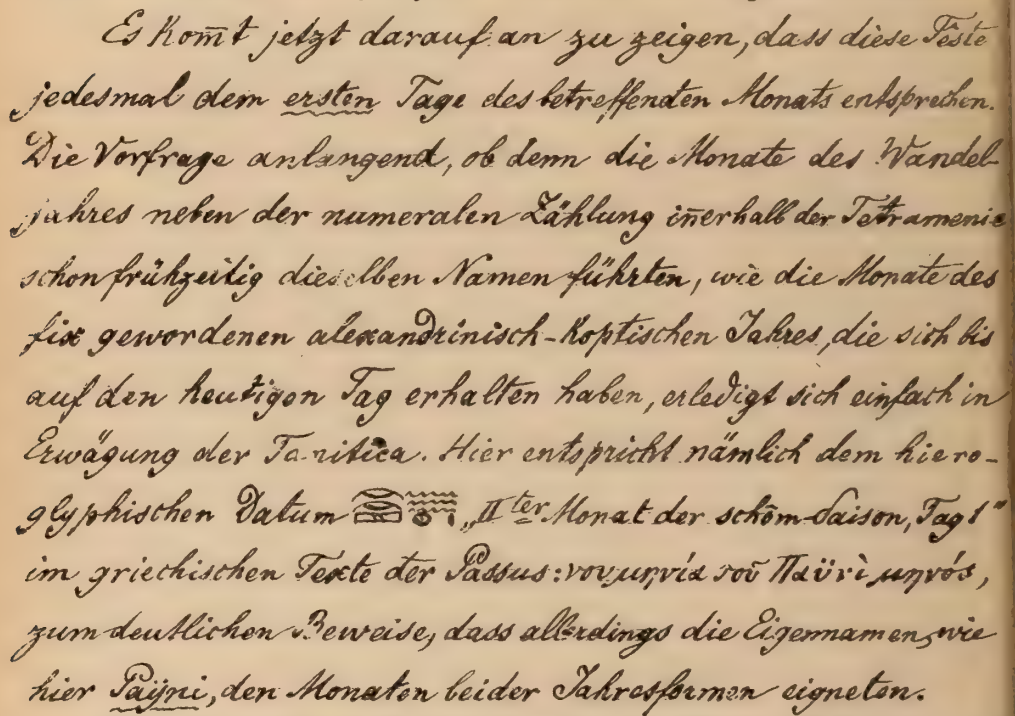 Es kom̄t jetzt darauf an zu zeigen, dass diese Feste
jedesmal dem ersten Tage des betreffenden Monats entsprechen.
Die Vorfrage anlangend, ob denn die Monate des Wandel-
jahres neben der numeralen Zählung in̄erhalb der Tetramenie
schon frühzeitig dieselben Namen führten, wie die Monate des
fix gewordenen alexandrinisch-koptischen Jahres, die sich bis
auf den heutigen Tag erhalten haben, erledigt sich einfach in
Erwägung der Tanitica. Hier entspricht nämlich dem hiero-
glyphischen Datum „II ter Monat der schōm-Saison, Tag 1"
im griechischen Texte der Passus: νουμηνία τοῦ Παϋνὶ μηνός,
zum deutlichen Beweise, dass allerdings die Eigennamen, wie
hier Paÿni, den Monaten beider Jahresformen eigneten.